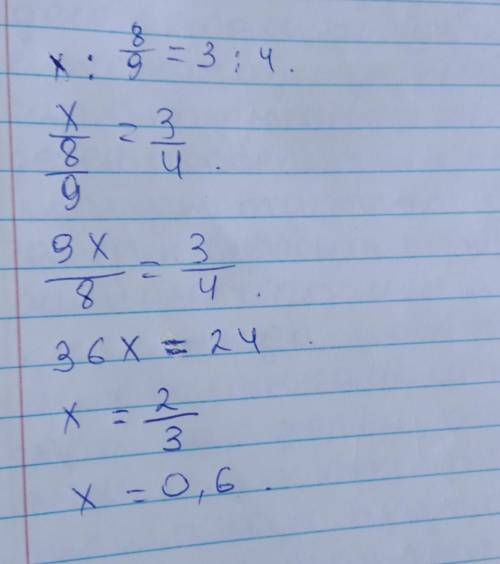 x : 8/9 = 3 : 4.
x/(8/9) = 3/4.
9x/8 = 3/4.
36x = 24.
x = 2/3
x = 0,6.